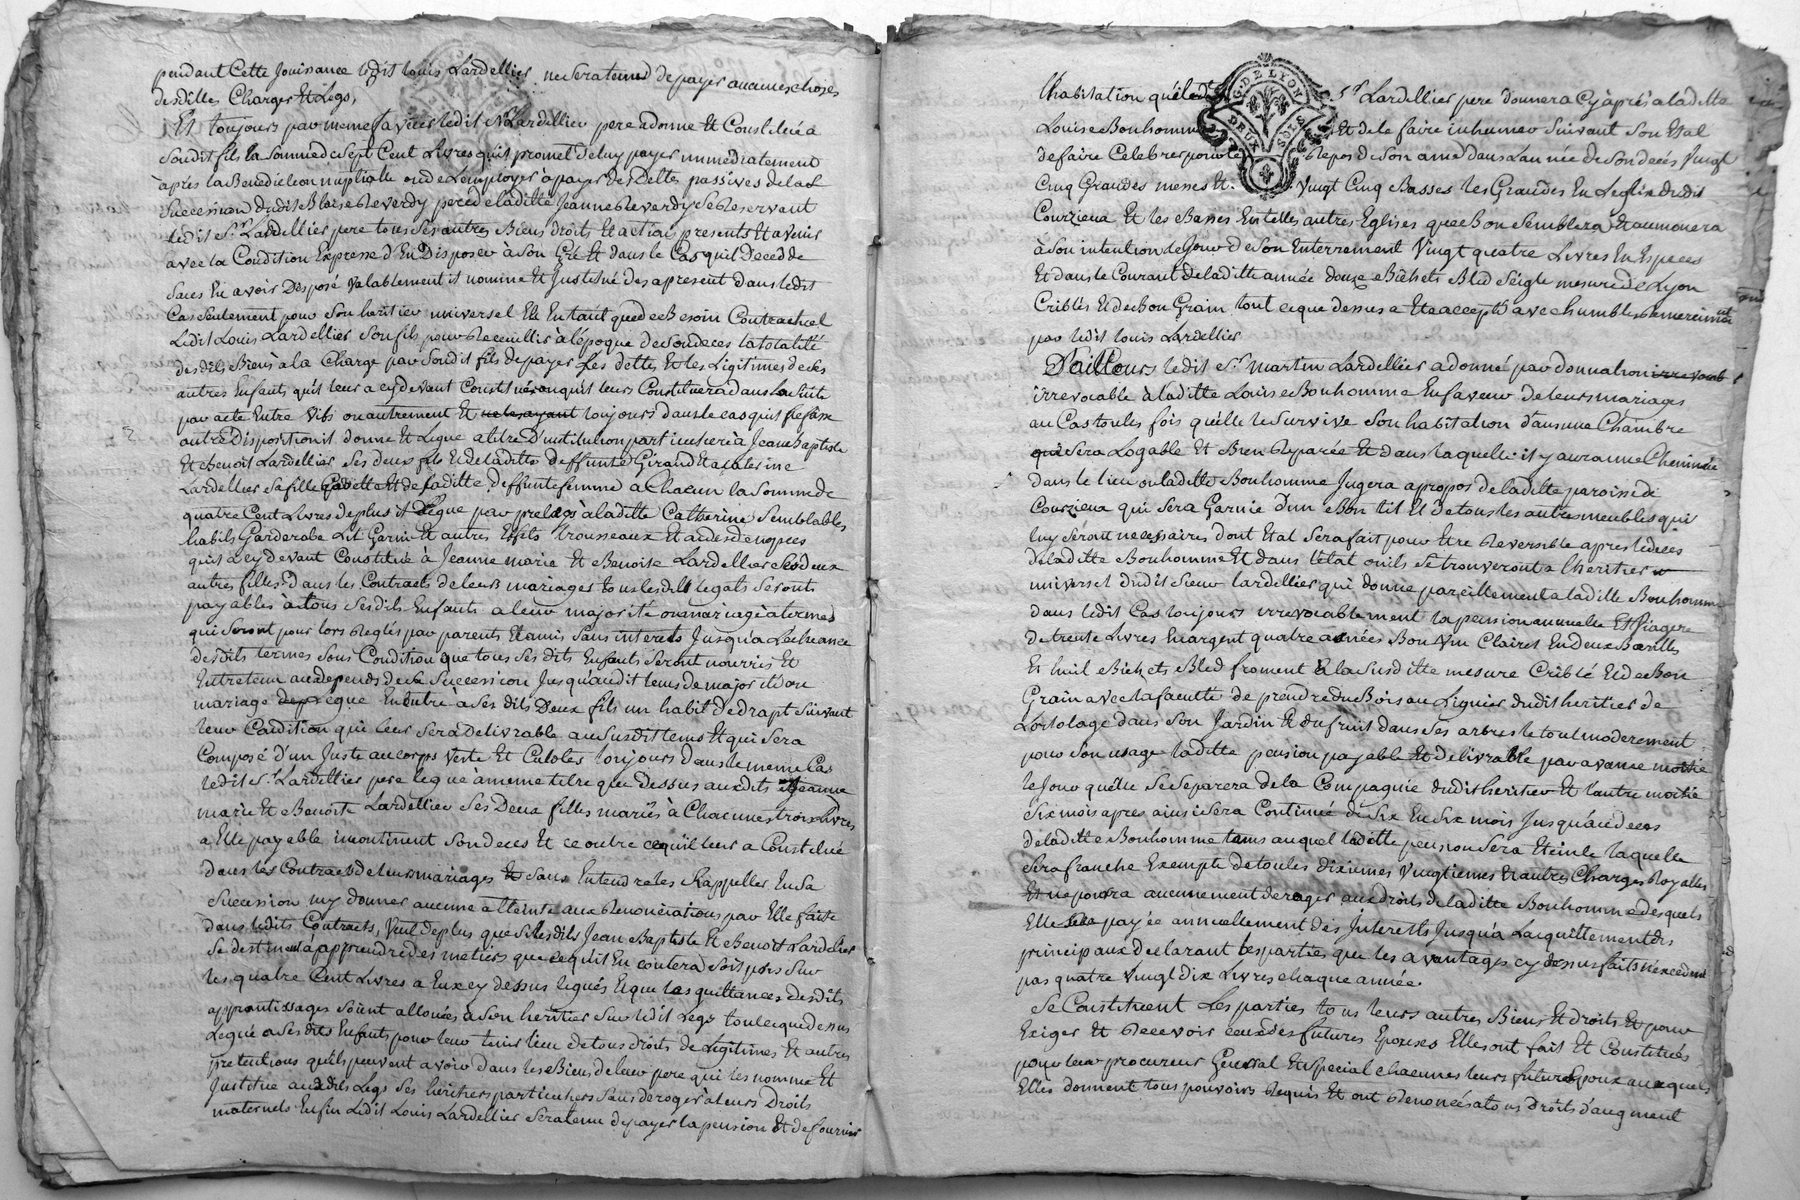 pendant Cette Jouissance ledit Louis Lardellier ne sera tenu de payer aucunes choses
desdittes Charges Et Legs,
Et toujours par meme faveur ledit Sr Lardellier pere a donné Et Constitué a
soudit fils la somme de sept Cent Livres qu'il promet de luy payer immediatement
àprés la Benediction nuptialle ou de L'employer à payer des Dettes passives de la
succession dudit Blaise Reverdy pere de laditte Jeanne Reverdy se Reservant
ledit Sr Lardellier pere tous ses autres Biens droits Et actions presents Et avenir
avec la Condition Expresse d'En Disposer à son Gré Et dans le Cas quil decedde
sans En avoir Disposé valablement il nomme Et Justitue des apresent dans ledit
Cas seulement pour son heritier universel Et En tant que de Besoin Contractuel
Ledit Louis Lardellier son fils pour Recceullir à l'époque de son deces la totalité
desdits Biens à la Charge par soudit fils de payer les dettes Et les Legitimes de ses
autres Enfants qu'il leur a cydevant Constitués ou qu'il leur Constituera dans la suite
par acte Entre Vifs ou autrement Et ne les ayant toujours dans le cas qu'il fasse
autre Disposition il donne Et Legue a titre D'institution particuliere à Jean Baptiste
Et Benoit Lardellier ses deux fils Et de laditte deffunte Giraud Et a Caterine
Lardellier sa fille Cadette Et de laditte deffunte femme a Chacun la somme de
quatre Cent Livres de plus il Legue par prelegs à laditte Catherine semblables
habits Garderobe Lit Garni Et autres Effets Trousseaux Et aides de nopces
qu'il a cy devant Constitué à Jeanne marie Et Benoite Lardellier ses deux
autres filles dans les Contracts de leurs mariages tous lesdits legats seront
payables à tous sesdits Enfants a leur majorité ou mariage à termes
qui seront pour lors Reglés par parents Et amis sans interets Jusqu'a Lecheance
desdits termes sous Condition que tous ses dits Enfants seront nourris Et
Entretenu audepends de sa succession Jusqu'audit tems de majorité ou
mariage Legue En outre à ses dits Deux fils un habit de drapt suivant
leur Condition qui leur sera Delivrable au susdit tems Et qui sera
Composé d'un Juste au corps Veste Et Culotes toujours dans le meme Cas
ledit Sr Lardellier pere legue a meme titre que dessus auxdits Jeanne
marie Et Benoite Lardellier ses Deux filles mariés à Chacunes trois Livres
a Elle payable incontinent son deces Et ce outre ce qu'il leur a Constitué
dans les Contracts de leurs mariages Et sans Entendre les Rappeller En sa
succession ny donner aucune atteinte aux Renonciations par Elle faite
dans ledits Contracts, Veut de plus que si lesdits Jean Baptiste Et Benoit Lardellier
se destinent à apprendre des metiers que ce qu'il En coutera soit pris sur
les quatre Cent Livres a Eux cy dessus legués Et que les quittances desdits
apprantissages soient alloués à son heritier sur ledit Legs tout ce que dessus
Legué a ses dits Enfants pour leur tenir lieu de tous droits de Legitimes Et autres
pretentions qu'ils peuvent avoir dans les Biens de leur pere qui les nomme Et
Justitue auxdits Legs ses heritiers particuliers sans deroger à leurs Droits
maternels Enfin Ledit Louis Lardellier sera tenu de payer la pension Et de fournir
G. DE LYON
DEUX SOLS
l'habitation que led Sr Lardellier pere donnera Cy àprés a laditte
Louise Bonhomme Et de le faire inhumer suivant son Etat
de faire Celebrer pour le Repos de son ame dans Lannée de son decés Vingt
Cinq Grandes messes Et Vingt Cinq Basses les Grandes En Leglise dudit
Courzieux Et les Basses En telles autres Eglises que Bon semblera Et aumonera
à son intention le Jour de son Enterrement Vingt quatre Livres En Especes
Et dans le Courant de laditte année douze Bichets Bled seigle mesure de Lyon
Criblés Et de Bon Grain tout ce que dessus a Eté accepté avec humbles Remerciment
par ledit louis Lardellier
D'ailleurs ledit Sr martin Lardellier a donné par donnation irrevocab
irrevocable à laditte Louise Bonhomme En faveur de leurs mariages
au Cas toutes fois qu'elle le survive son habitation dans une Chambre
qui sera Logable Et Bien Reparée Et dans laquelle il y aura une Cheminée
dans le lieu ou laditte Bonhomme Jugera apropos de laditte paroisse de
Courzieux qui sera Garnie d'un Bon lit Et De tous les autres meubles qui
luy seront necessaires dont Etat sera fait pour Etre Reversible apres le deces
de laditte Bonhomme Et dans l'état ou ils se trouveront a L'heritier
universel dudit sieur lardellier qui donne pareillement a laditte Bonhomme
dans ledit Cas toujours irrevocablement la pension annuelle Et Viagere
de trente Livres En argent quatre asnées Bon Vin Clairet En deux Bareilles
Et huit Bichets Bled froment à la susditte mesure Criblé Et de Bon
Grain avec la faculté de prendre du Bois au Lignier dudit heritier de
L'ortolage dans son Jardin Et du fruit dans ses arbres le tout moderement
pour son usage laditte pension payable Et delivrable par avance moitié
le Jour qu'elle se separera de la Compagnie dudit heritier Et l'autre moitié
six mois apres ainsi sera Continué de six En six mois Jusqu'au deces
de laditte Bonhomme tems auquel laditte pension sera Eteinte laquelle
sera franche Exempte de toutes dixiemes Vingtiemes Et autres Charges Royalles
Et ne pourra aucunement deroger aux droits de laditte Bonhomme desquels
Elle sera payée annuellement des Interets Jusqu'a Lacquittement des
principaux declarant les parties que les avantages cy dessus faits n'excedent
pas quatre Vingt dix Livres chaque année.
Se Constituent Les parties tous leurs autres Biens Et droits Et pour
Exiger Et Recevoir ceux des futures Epouses Elles ont fait Et Constitués
pour leur procureur General Et special chacunes leurs futurs Epoux auxquels
Elles donnent tous pouvoirs Requis Et ont Renoncés a tous Droits d'augment